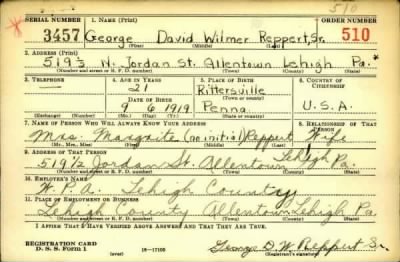 510
SERIAL NUMBER 1. NAME (Print) ORDER NUMBER
3457 George David Wilmer Reppert, Sr. 510
(First) (Middle) (Last)
2. ADDRESS (Print)
519½ N. Jordan St. Allentown Lehigh Pa.
(Number and street or R. F. D. number) (Town) (County) (State)
3. TELEPHONE 4. AGE IN YEARS 5. PLACE OF BIRTH 6. COUNTRY OF CITIZENSHIP
— 21 Rittersville
DATE OF BIRTH (Town or county)
9 6 1919 Penna. U.S.A.
(Exchange) (Number) (Mo.) (Day) (Yr.) (State or country)
7. NAME OF PERSON WHO WILL ALWAYS KNOW YOUR ADDRESS 8. RELATIONSHIP OF THAT PERSON
Mrs. (no initial) Reppert Wife
(Mr., Mrs., Miss) (First) (Middle) (Last)
9. ADDRESS OF THAT PERSON
519½ Jordan St. Allentown Lehigh Pa.
(Number and street or R. F. D. number) (Town) (County) (State)
10. EMPLOYER'S NAME
W.P.A. Lehigh Country
11. PLACE OF EMPLOYMENT OR BUSINESS
Lehigh County Allentown Lehigh Pa.
(Number and street or R. F. D. number) (Town) (County) (State)
I AFFIRM THAT I HAVE VERIFIED ABOVE ANSWERS AND THAT THEY ARE TRUE.
REGISTRATION CARD
D. S. S. Form 1 16—17105 George D. W. Reppert Sr.
(Registrant's signature)